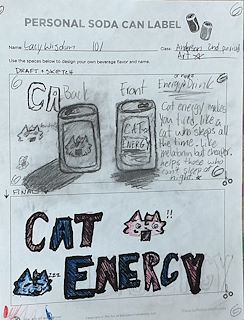 PERSONAL SODA CAN LABEL
Name: Lacy Wisdom 101
Class: Anderson 2nd period Art
Use the spaces below to design your own beverage flavor and name.
DRAFT + SKETCH
Energy Drink
CA
Back
Front
CAT
ENERGY
Cat energy makes
you tired, like a
cat who sleeps all
the time. Like
melatonin but cheaper.
helps those who
can't sleep at
night.
FINAL
CAT
!!
ENERGY
zzz